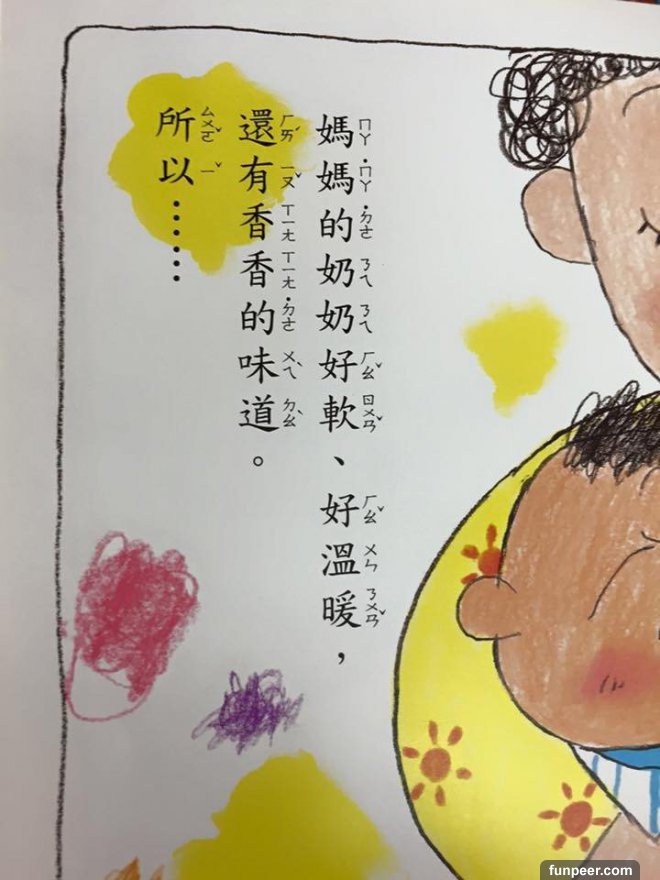 媽媽的奶奶好軟、好溫暖，
還有香香的味道。
所以……
funpeer.com